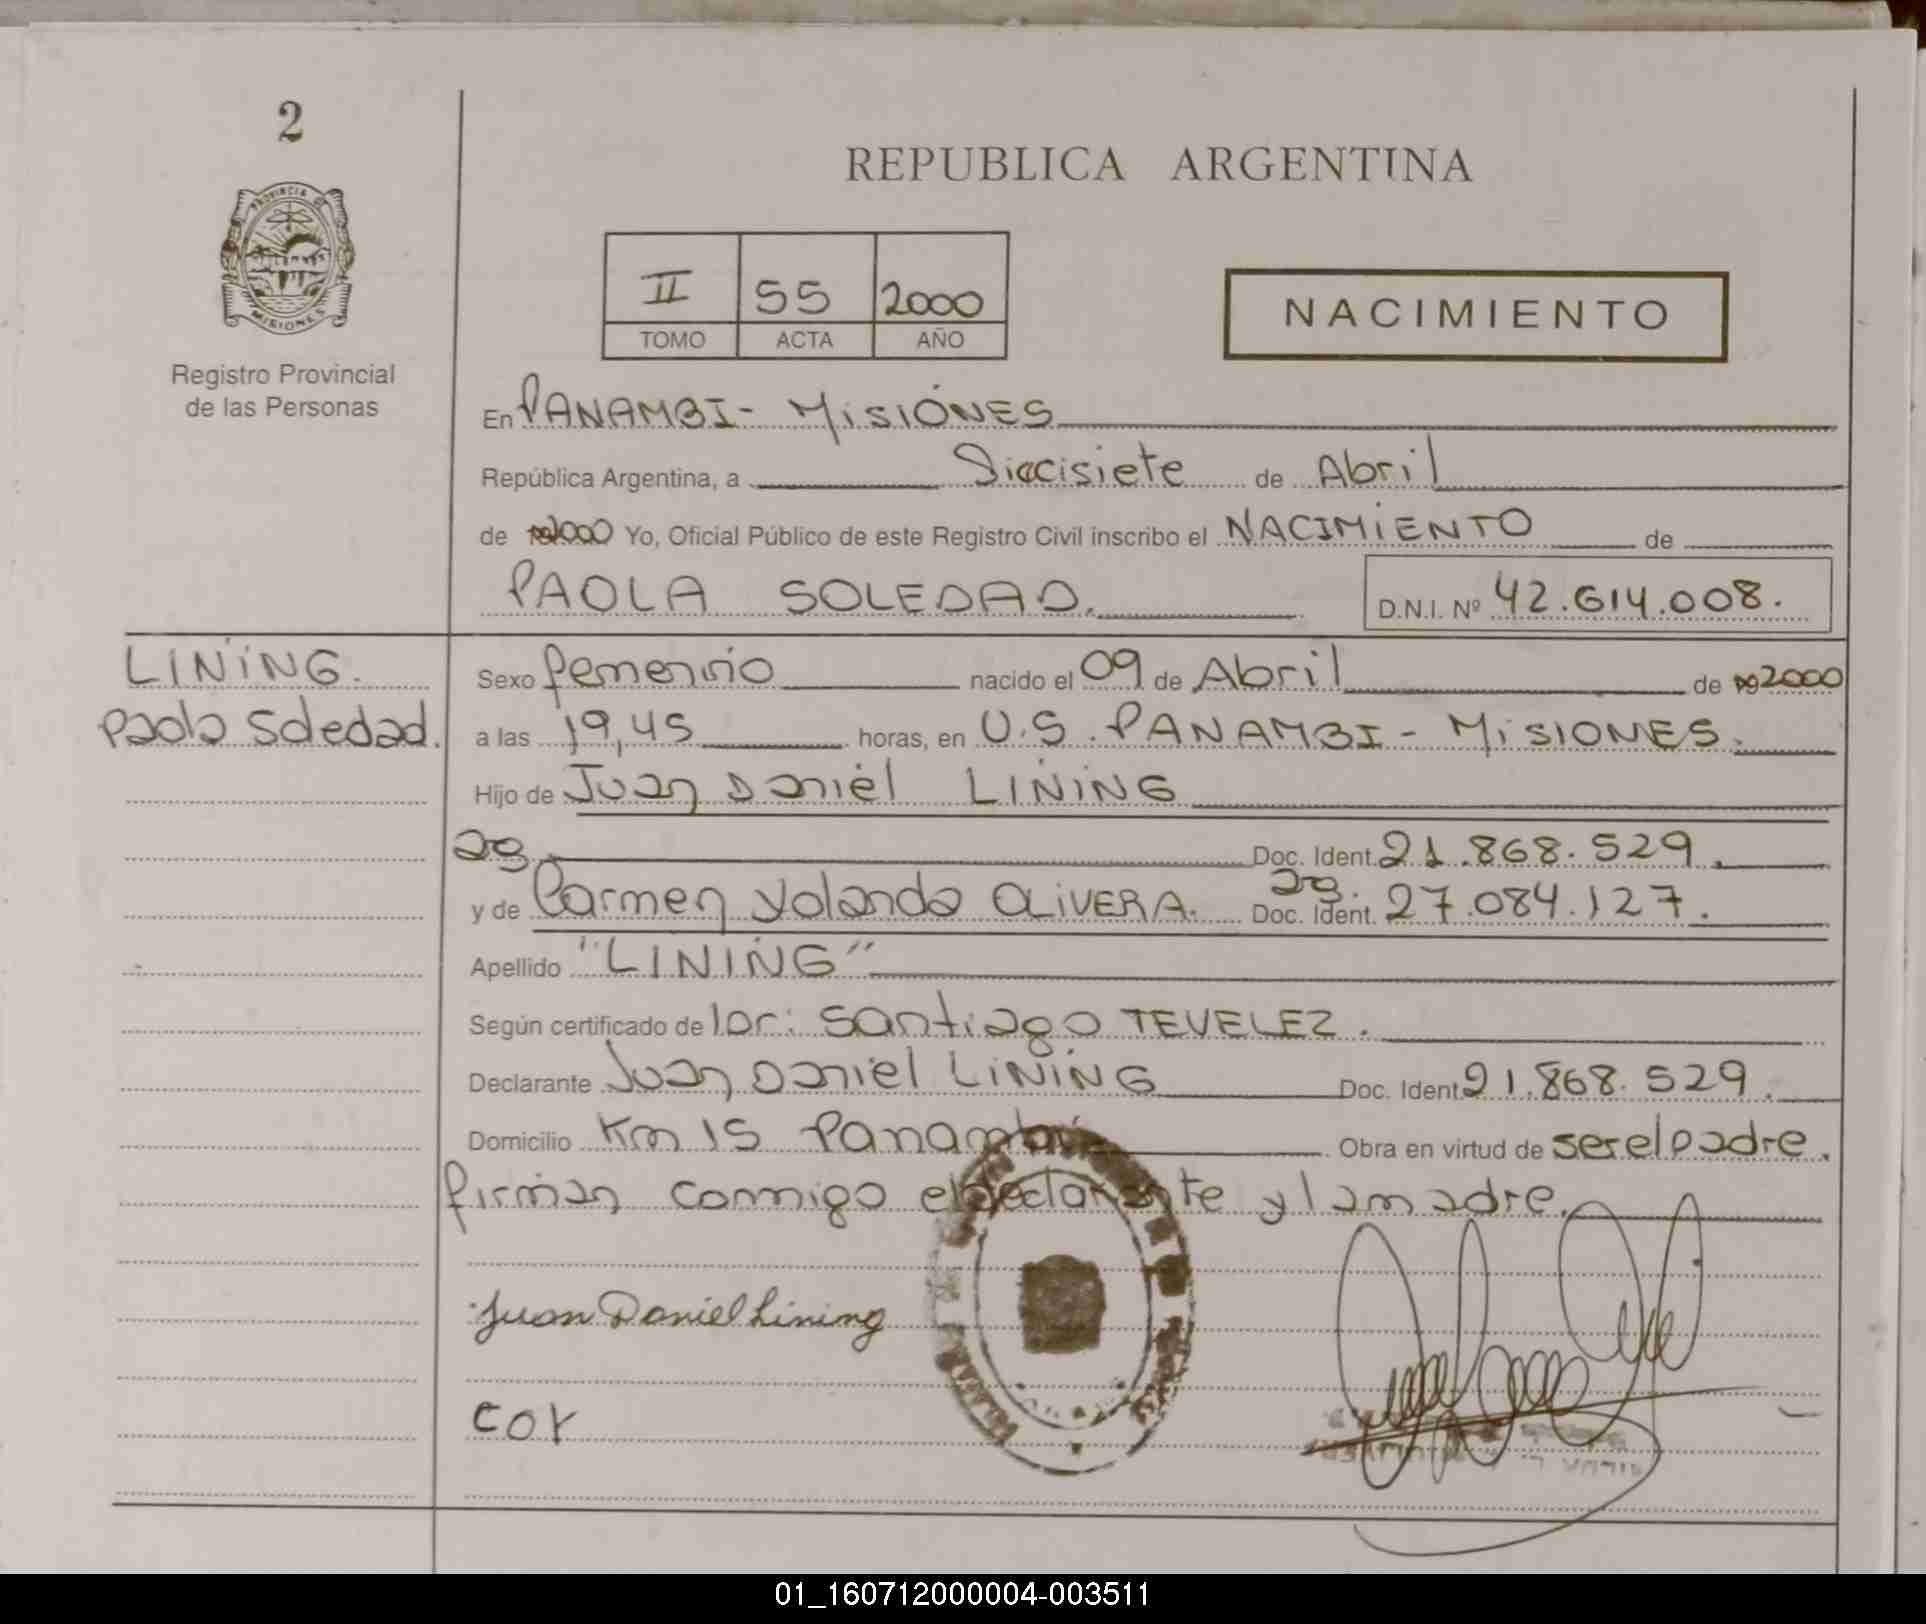 2
REPUBLICA ARGENTINA
PROVINCIA DE
MISIONES
Registro Provincial
de las Personas
II 55 2000
TOMO ACTA AÑO
NACIMIENTO
En PANAMBI - MISIONES
República Argentina, a Diecisiete de Abril
de 2000 Yo, Oficial Público de este Registro Civil inscribo el NACIMIENTO de
PAOLA SOLEDAD. D.N.I. Nº 42.614.008.
LINING.
Paola Soledad.
Sexo femenino nacido el 09 de Abril de 2000
a las 19,45 horas, en U.S. PANAMBI - MISIONES.
Hijo de Juan Daniel LINING
ag. Doc. Ident. 21.868.529.
y de Carmen Yolanda OLIVERA. Doc. Ident. ag. 27.084.127.
Apellido "LINING"
Según certificado de Santiago TEVELEZ.
Declarante Juan Daniel LINING Doc. Ident. 21.868.529.
Domicilio Km 15 Panambí Obra en virtud de ser el padre.
firman conmigo el declarante y la madre.
Juan Daniel Lining
COY
01_160712000004-003511